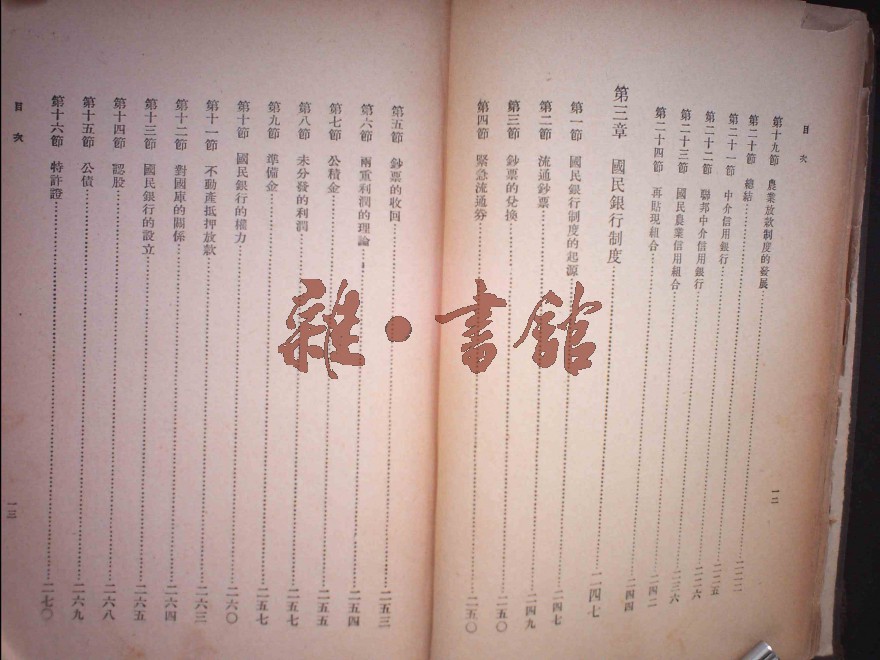 目次
一二
第十九節 農業放款制度的發展……二二二
第二十節 總結……二二五
第二十一節 中介信用銀行……二二六
第二十二節 聯邦中介信用銀行……二三六
第二十三節 國民農業信用組合……二四二
第二十四節 再貼現組合……二四四
第三章 國民銀行制度……二四七
第一節 國民銀行制度的起源……二四七
第二節 流通鈔票……二四九
第三節 鈔票的兌換……二五〇
第四節 緊急流通券……二五〇
第五節 鈔票的收回……二五三
第六節 兩重利潤的理論……二五四
第七節 公積金……二五五
第八節 未分發的利潤……二五七
第九節 準備金……二五七
第十節 國民銀行的權力……二六〇
第十一節 不動產抵押放款……二六三
第十二節 對國庫的關係……二六四
第十三節 國民銀行的設立……二六五
第十四節 認股……二六八
第十五節 公債……二六九
第十六節 特許證……二七〇
目次
一三
雜·書館